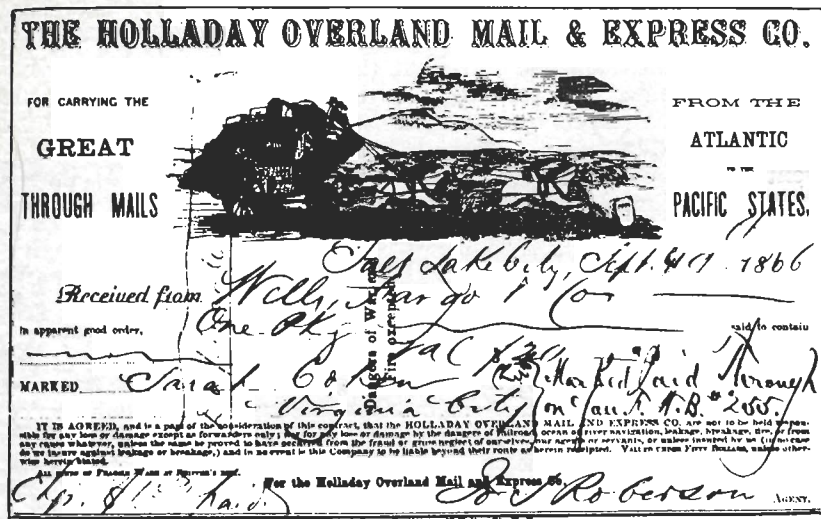 THE HOLLADAY OVERLAND MAIL & EXPRESS CO.
FOR CARRYING THE
GREAT
THROUGH MAILS
FROM THE
ATLANTIC
TO THE
PACIFIC STATES,
Salt Lake City, Sept. 1866
Received from Wells, Fargo & Co
In apparent good order, One Pkg said to contain
Dangers of War and Fire excepted
MARKED Sarah Marked Paid Through
Virginia City on W.B. #255.
IT IS AGREED, and is a part of the consideration of this contract, that the HOLLADAY OVERLAND MAIL AND EXPRESS CO. are not to be held respon-
sible for any loss or damage except as forwarders only; nor for any loss or damage by the dangers of railroad, ocean or river navigation, leakage, breakage, fire, or from
any cause whatever, unless the same be proved to have occurred from the fraud or gross neglect of ourselves, our agents or servants, or unless insured by us (in no case
do we insure against leakage or breakage,) and in no event is this Company to be liable beyond their route as herein receipted. VALUED UNDER FIFTY DOLLARS, unless other-
wise herein stated.
For the Holladay Overland Mail and Express Co.
Roberson AGENT.